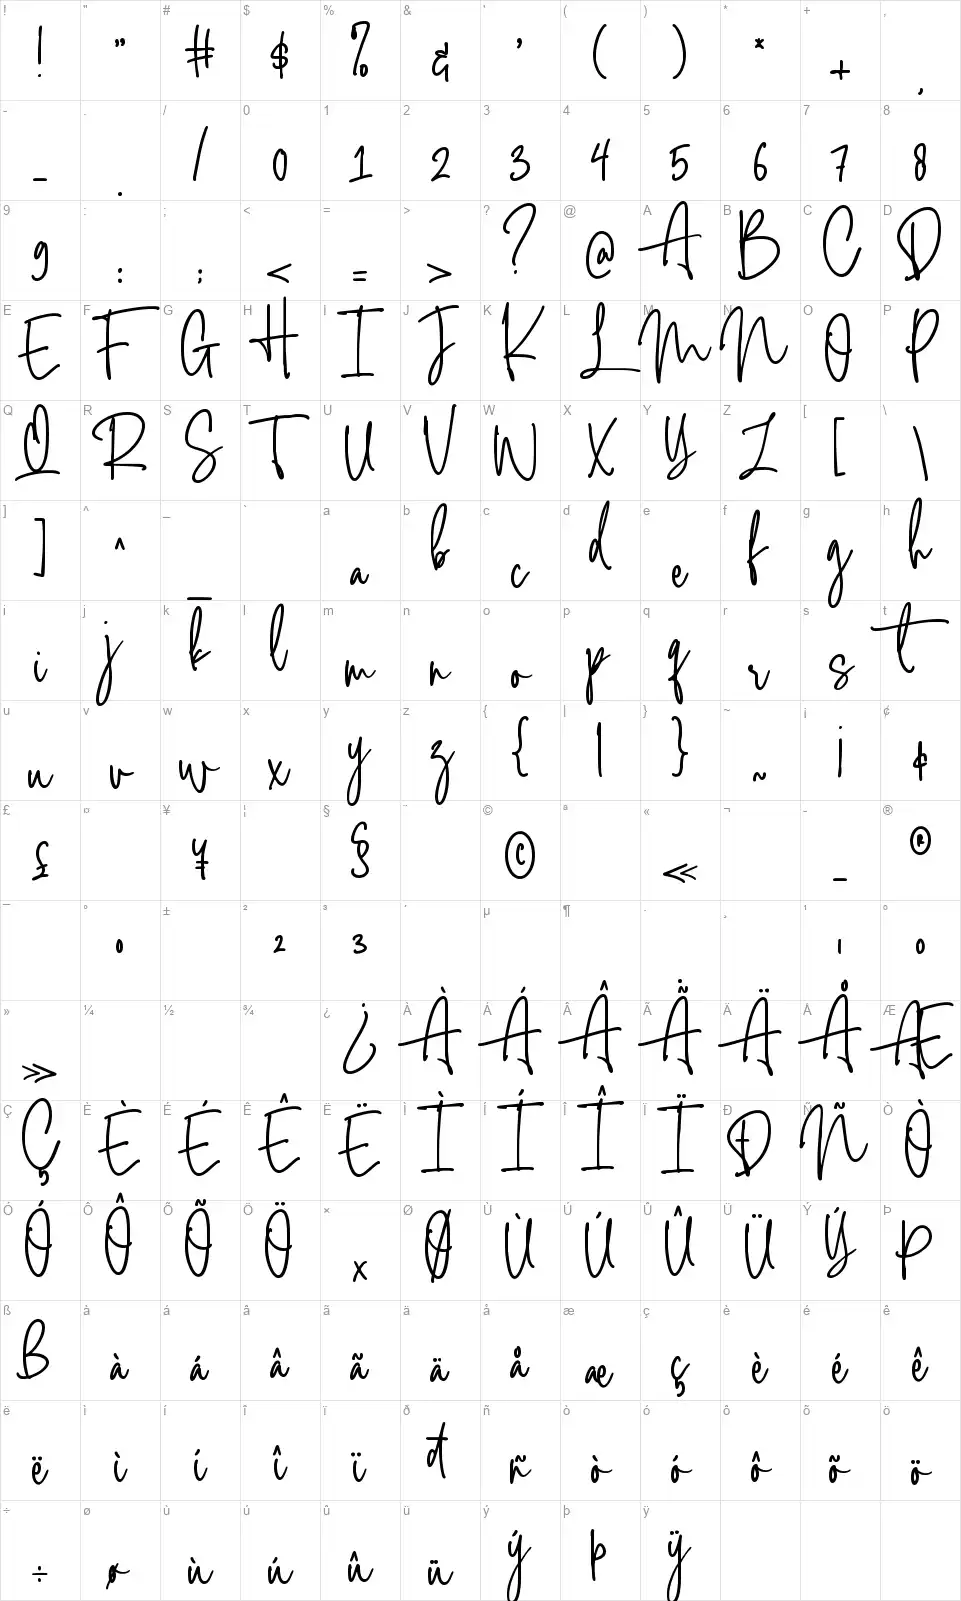 ! " # $ % & ' ( ) * + ,
! " # $ % & ' ( ) * + ,
- . / 0 1 2 3 4 5 6 7 8
- . / 0 1 2 3 4 5 6 7 8
9 : ; < = > ? @ A B C D
9 : ; < = > ? @ A B C D
E F G H I J K L M N O P
E F G H I J K L M N O P
Q R S T U V W X Y Z [ \
Q R S T U V W X Y Z [ \
] ^ _ ` a b c d e f g h
] ^ _ a b c d e f g h
i j k l m n o p q r s t
i j k l m n o p q r s t
u v w x y z { | } ~ ¡ ¢
u v w x y z { | } ~ ¡ ¢
£ ¤ ¥ ¦ § ¨ © ª « ¬ - ®
£ ¥ § © « - ®
¯ ° ± ² ³ ´ µ ¶ · ¸ ¹ º
° ² ³ ¹ º
» ¼ ½ ¾ ¿ À Á Â Ã Ä Å Æ
» ¿ À Á Â Ã Ä Å Æ
Ç È É Ê Ë Ì Í Î Ï Ð Ñ Ò
Ç È É Ê Ë Ì Í Î Ï Ð Ñ Ò
Ó Ô Õ Ö × Ø Ù Ú Û Ü Ý Þ
Ó Ô Õ Ö × Ø Ù Ú Û Ü Ý Þ
ß à á â ã ä å æ ç è é ê
ß à á â ã ä å æ ç è é ê
ë ì í î ï ð ñ ò ó ô õ ö
ë ì í î ï ð ñ ò ó ô õ ö
÷ ø ù ú û ü ý þ ÿ
÷ ø ù ú û ü ý þ ÿ